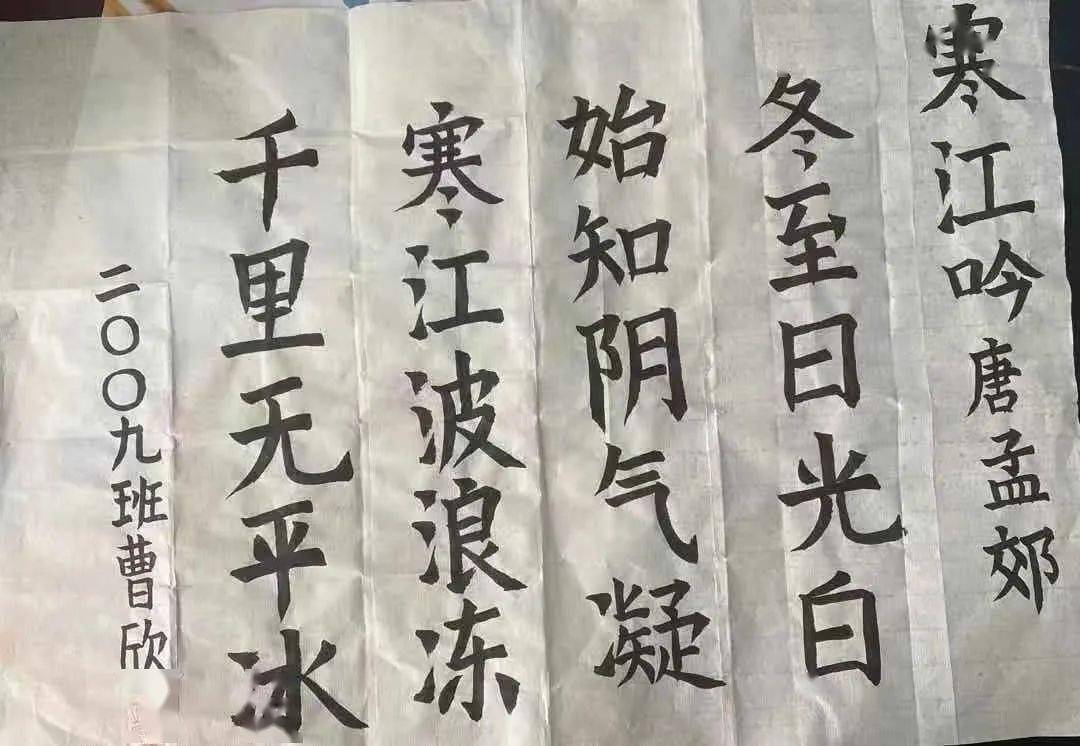 寒江吟 唐 孟郊
冬至日光白
始知阴气凝
寒江波浪冻
千里无平冰
二〇〇九班曹欣